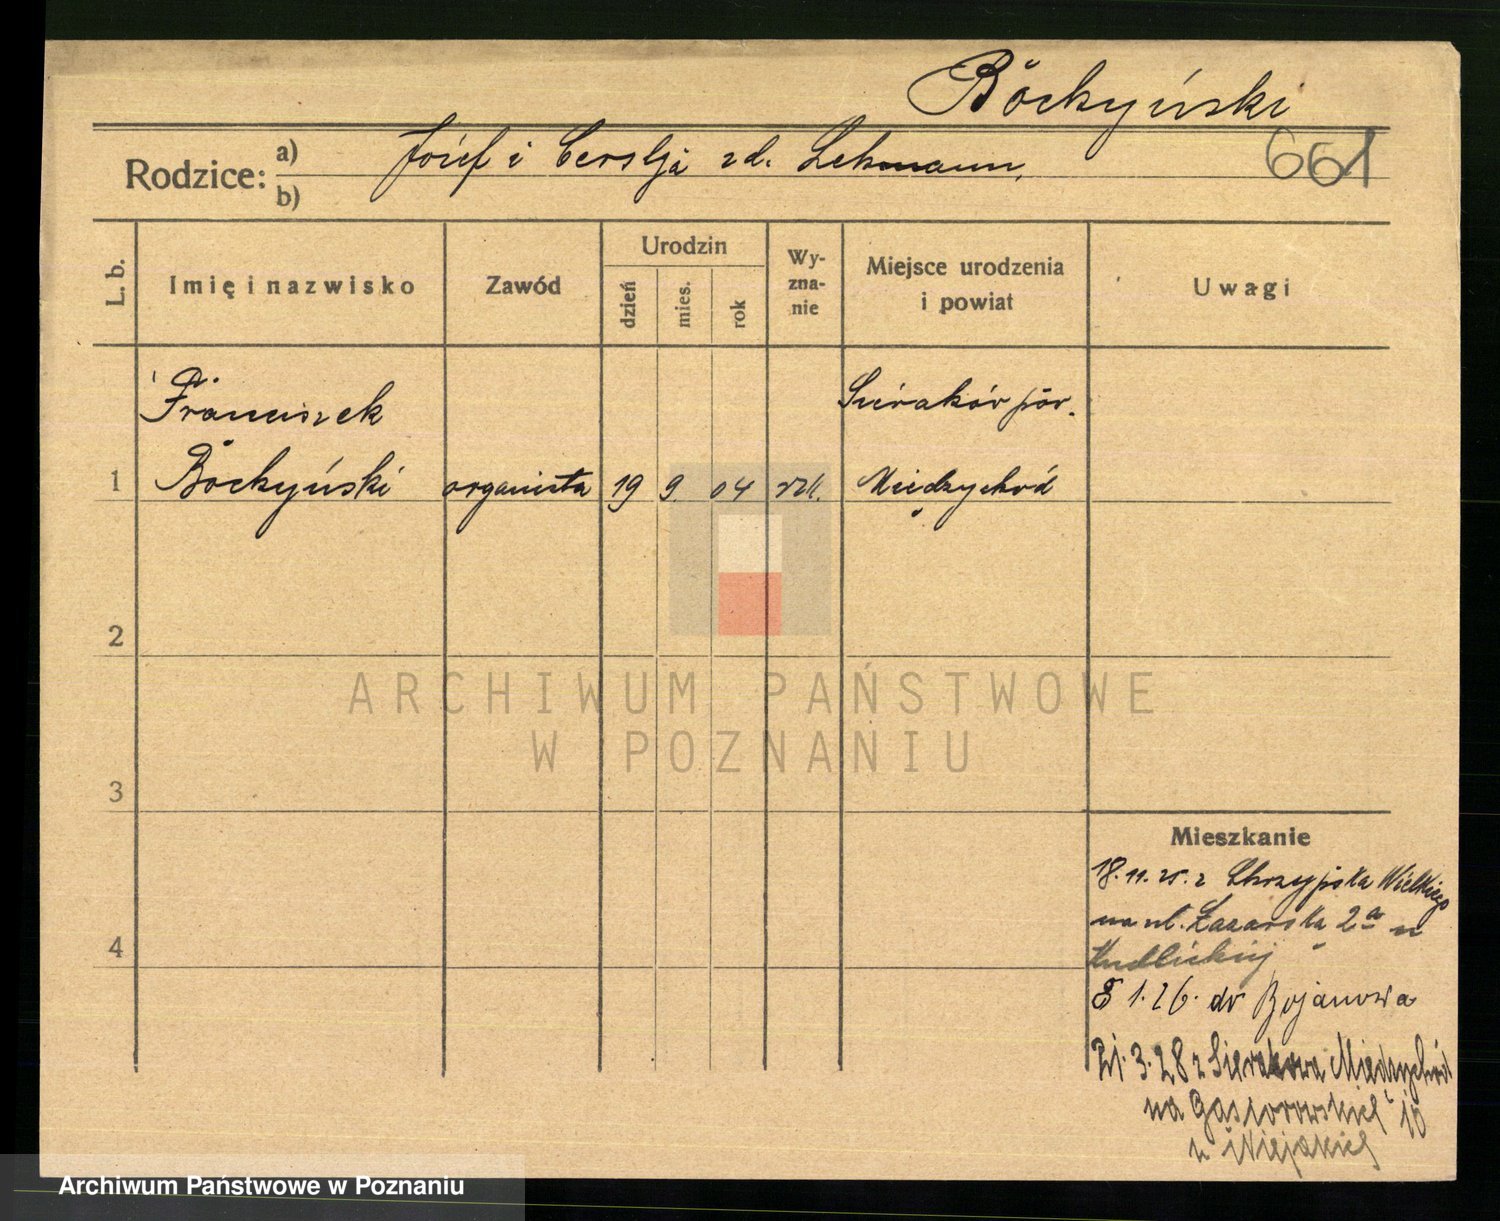 Böckyński
661
Rodzice: a) Józef i zd. Lehmann,
b)
L. b. Imię i nazwisko Zawód Urodzin dzień mies. rok Wy-zna-nie Miejsce urodzenia i powiat Uwagi
Franciszek Sieraków pow.
1 Böckyński organista 19 9. 04 rzk. Międzychód
2
3
4
ARCHIWUM PAŃSTWOWE
W POZNANIU
Mieszkanie
18.11.25. z Chrzypska Wielkiego
na ul. Łazarska 2a u
1.26. do Bojanowa
21.3.28 z Sierakowa Międzychód
na Gąsiorowskich 10
u
Archiwum Państwowe w Poznaniu